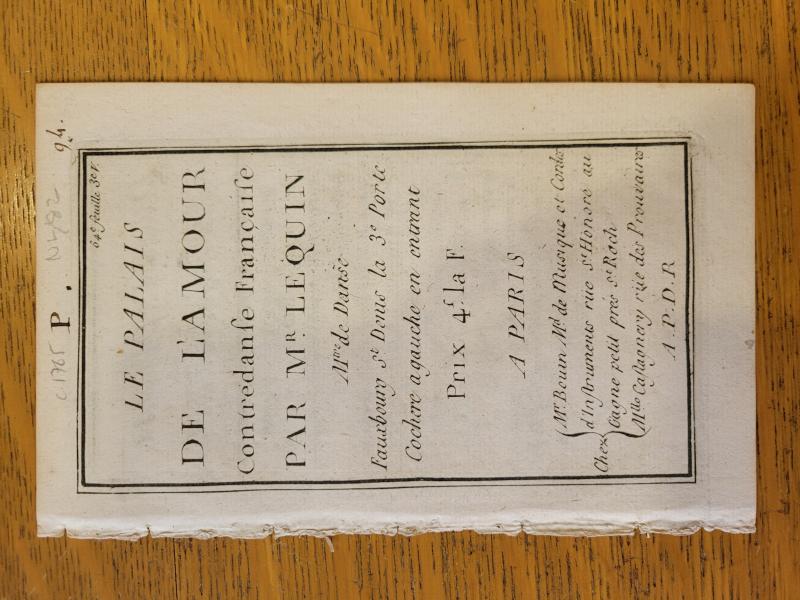 c1765
P.
94.
64e. feuille 3e v.
LE PALAIS
DE L'AMOUR
Contredanſe Françaiſe
PAR MR. LEQUIN
Mtre de Danse
Fauxbourg St Denis la 3e Porte
Cochere a gauche en entrant
Prix 4ſ. la F.
A PARIS
Chez
Mr. Bouin Md. de Musique et Cordes
d'Instruments rue St Honoré au
Gagne petit pres St Roch
Mlle Castagnery rüe des Prouvaires
A. P. D. R